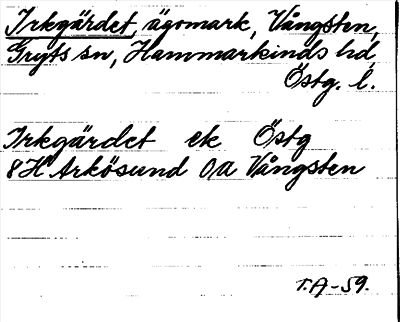 Irkgärdet, ägomark, Vångsten,
Gryts sn, Hammarkinds hd
Östg. l.
Irkgärdet ek Östg
8H Arkösund Oa Vångsten
T.A-59.